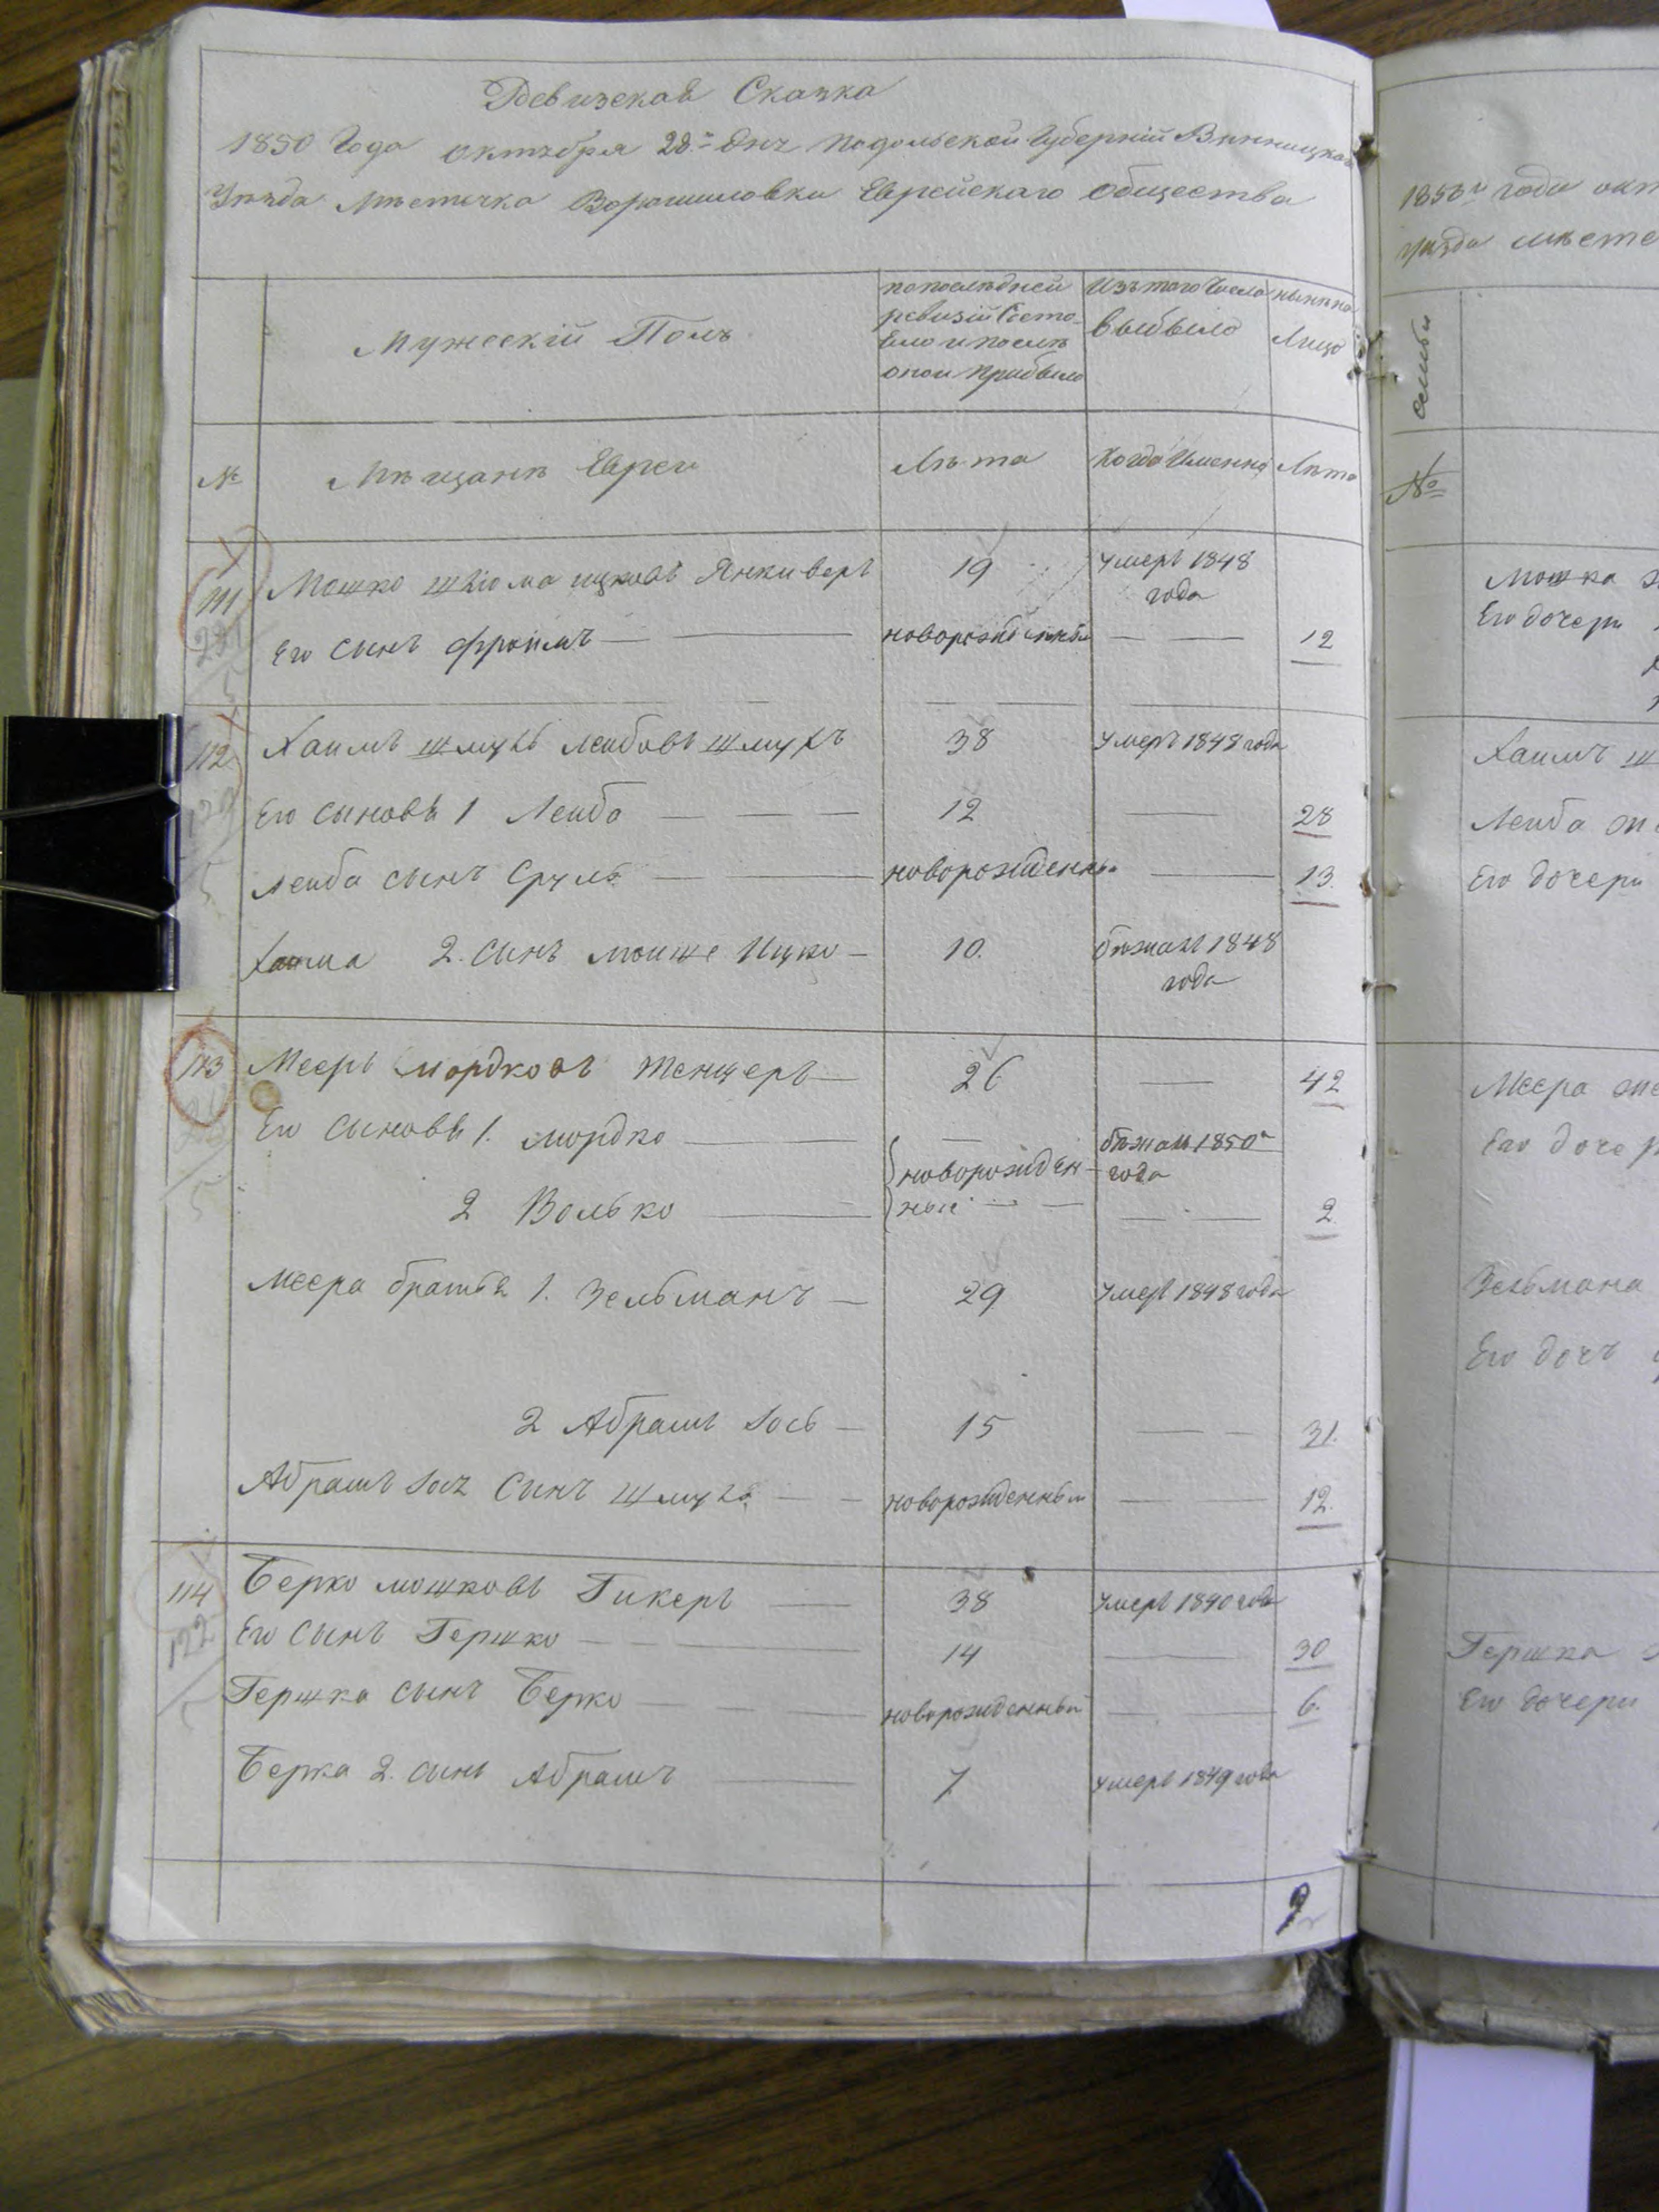 Ревизская Сказка
1850 Года октября 28го дня Подольской Губерніи Винницкой
Уезда Местечка Ворошиловки Еврейскаго Общества
Мужескій Полъ
по последней ревизіи Состояло и после оной прибыло
Изъ того Числа выбыло
ныне на Лицо
№
Мещане Евреи
Лета
Когда Именно
Лета
111 Мошко Шлiома ицковъ Янкиверъ 19 умеръ 1848 года
221
5
Его сынъ Фроимъ новорожденный 12
112 Хаимъ Шмуль Лейбовъ Шмукъ 38 умеръ 1848 года
Его сыновья 1 Лейба 12 28
5
Лейба сынъ Сруль новорожденный 13.
Хаима 2. сынъ Моише Ицко 10. бежалъ 1848 года
113 Мееръ Мордковъ Тенцеръ 26 42
Его сыновья 1. Мордко новорожденные бежалъ 1850го года
5
2 Волько 2
Меера братья 1. Зельманъ 29 умеръ 1848 года
2 Абрамъ Iось 15 31.
Абрамъ Iось Сынъ Шмуль новорожденный 12.
114 Берко мошковъ Гикеръ 38 умеръ 1840 года
122
Его Сынъ Гершко 14 30
Гершка сынъ Берко новорожденный 6.
Берка 2. сынъ Абрамъ 7 умеръ 1849 года
9
1850го года окт
уезда месте
семьи
№
Мошка
Его дочери
Хаимъ Ш
Лейба же
Его дочери
Меера же
Его дочер
Зельмана
Его дочь
Гершка
Его дочери